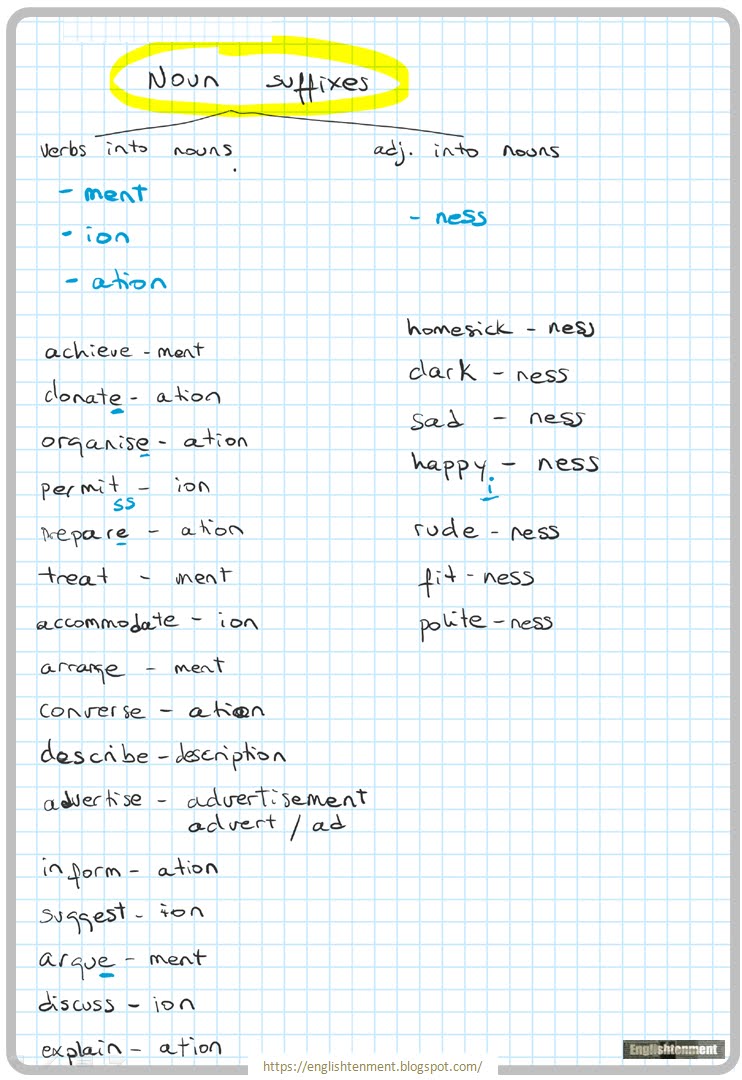 Noun suffixes
verbs into nouns.
- ment
- ion
- ation
achieve - ment
donate - ation
organise - ation
permit - ion
ss
prepare - ation
treat - ment
accommodate - ion
arrange - ment
converse - ation
describe - description
advertise - advertisement
advert / ad
inform - ation
suggest - ion
argue - ment
discuss - ion
explain - ation
adj. into nouns
- ness
homesick - ness
dark - ness
sad - ness
happy - ness
i
rude - ness
fit - ness
polite - ness
Englishtenment
https://englishtenment.blogspot.com/